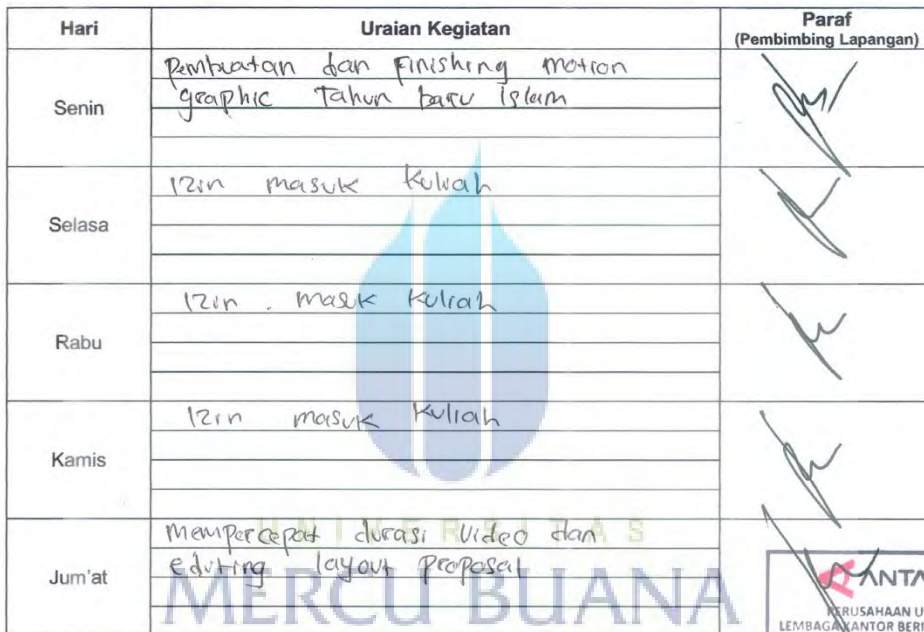 Hari Uraian Kegiatan Paraf
(Pembimbing Lapangan)
Senin
Pembuatan dan Finishing motion
graphic Tahun baru Islam
Selasa
Izin masuk Kuliah
Rabu
Izin . masuk Kuliah
Kamis
Izin masuk Kuliah
Jum'at
mempercepat durasi video dan
editing layout Proposal
UNIVERSITAS
MERCU BUANA
ANTA
PERUSAHAAN U
LEMBAGA KANTOR BERI